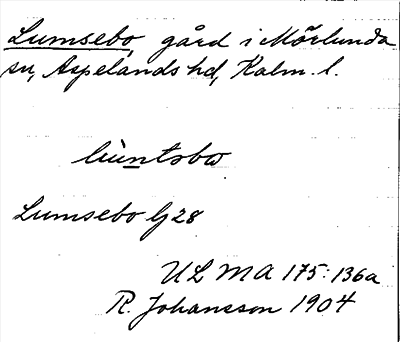 Lumsebo, gård i Mörlunda
sn, Aspelands hd, Kalm. l.
Lumsebo Gj 28
ULMA 175:136a
R. Johansson 1904